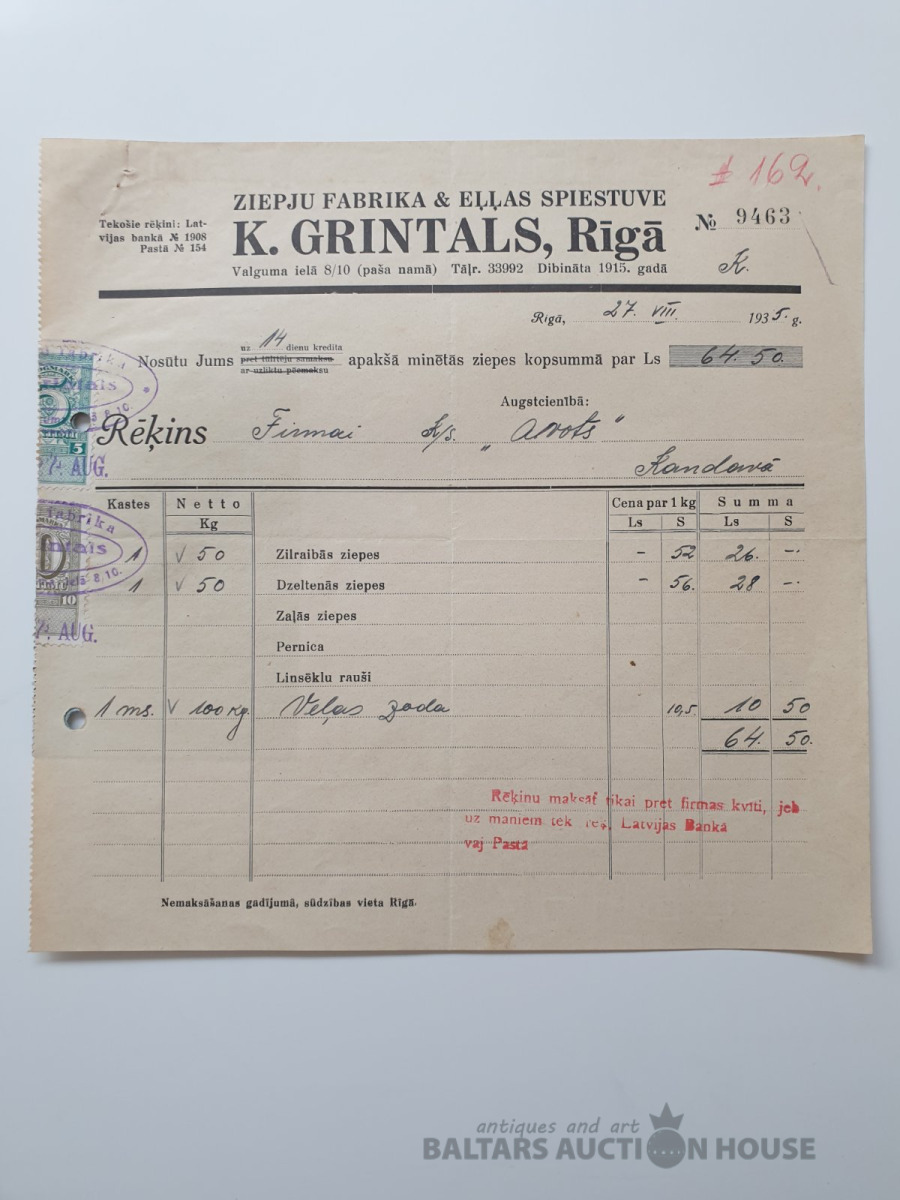 # 162.
ZIEPJU FABRIKA & EĻĻAS SPIESTUVE
Tekošie rēķini: Lat-
vijas bankā № 1908
Pastā № 154
K. GRINTALS, Rīgā
№ 9463
Valguma ielā 8/10 (paša namā) Tāļr. 33992 Dibināta 1915. gadā
K.
Rīgā, 27. VIII. 1935. g.
uz 14 dienu kredita
Nosūtu Jums pret tūlītēju samaksu apakšā minētās ziepes kopsummā par Ls 64.50
ar uzliktu pēcmaksu
Augstcienībā:
Rēķins Firmai K/s. „Avots"
Kandavā
fabrika
8/10.
5
AUG.
fabrika
8/10.
10
AUG.
Kastes Netto Cena par 1 kg Summa
Kg Ls S Ls S
1 √ 50 Zilraibās ziepes – 52 26. –.
1 √ 50 Dzeltenās ziepes – 56. 28 –.
Zaļās ziepes
Pernica
Linsēklu rauši
1 ms. √ 100 kg. Veļas zoda 10,5. 10 50
64. 50.
Rēķinu maksāt tikai pret firmas kvīti, jeb
uz maniem tek rēķ, Latvijas Bankā
vaj Pastā
Nemaksāšanas gadījumā, sūdzības vieta Rīgā.
antiques and art
BALTARS AUCTION HOUSE